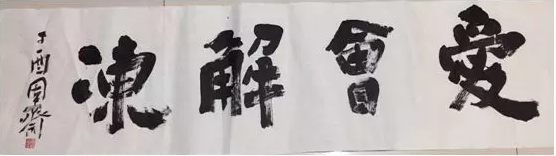 愛會解凍
丁酉